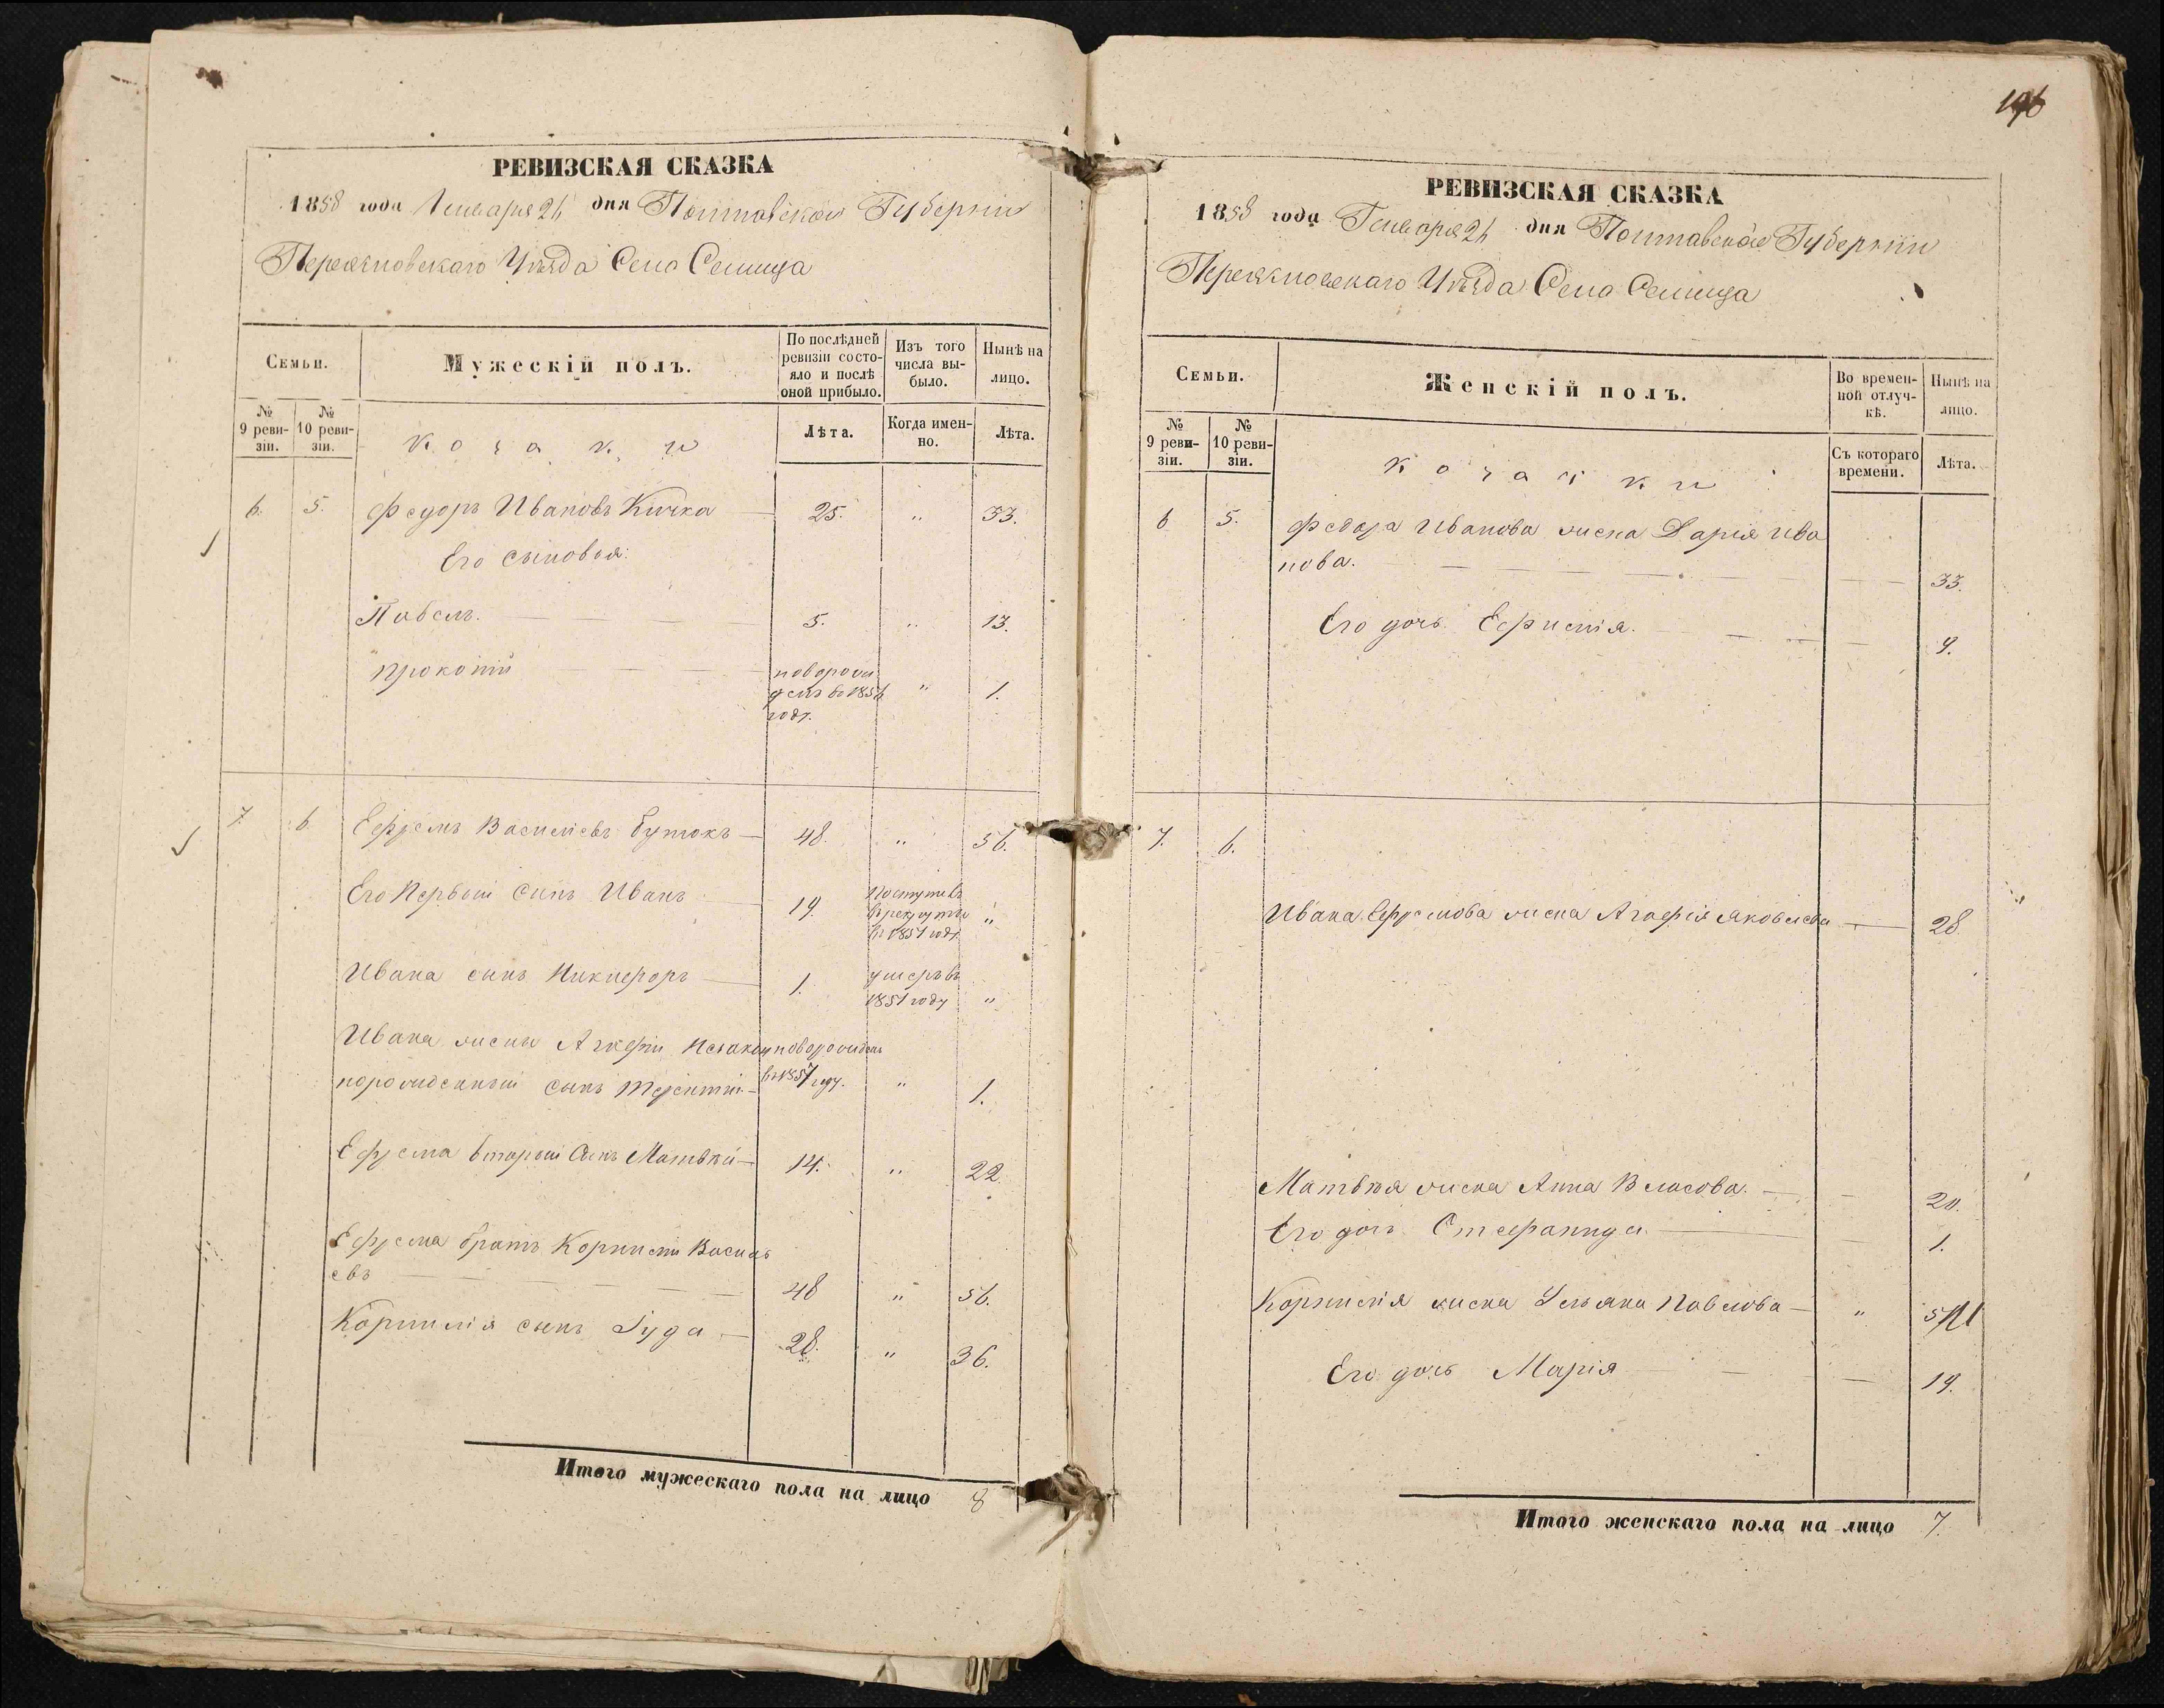 РЕВИЗСКАЯ СКАЗКА
1858 года Генваря 2 дня Полтавской Губернии
Переяславскаго Уѣзда Село Селища
Семьи.
Мужескій полъ.
По послѣдней ревизіи состояло и послѣ оной прибыло.
Изъ того числа выбыло.
Нынѣ на лицо.
№ 9 ревизіи.
№ 10 ревизіи.
козаки
Лѣта.
Когда именно.
Лѣта.
6. 5. Федоръ Ивановъ Кичка 25. " 33.
Его сыновья:
Павелъ. 5. " 13.
Прокопій новорож
денъ въ 1856 " 1.
годѣ.
7. 6 Ефремъ Василіевъ Бутокъ 48. " 56.
Его Первый сынъ Иванъ 19. Поступилъ
въ рекруты "
въ 1851 годѣ.
Ивана сынъ Никифоръ 1. умеръ въ
1851 году "
Ивана жены Агафіи Незакон новорожденъ
норожденный сынъ Терентій въ 1857 году. " 1.
Ефрема вторый Сынъ Матвѣй 14. " 22.
Ефрема братъ Корнилій Василь
евъ 48 " 56.
Корнилія сынъ Іуда 28. " 36.
Итого мужескаго пола на лицо 8
РЕВИЗСКАЯ СКАЗКА
1858 года Генваря 2 дня Полтавской Губерніи
Переяславскаго Уѣзда Село Селища
Семьи.
Женскій полъ.
Во временной отлучкѣ.
Нынѣ на лицо.
№ 9 ревизіи.
№ 10 ревизіи.
козачки
Съ котораго времени.
Лѣта.
6 5. Федора Иванова жена Дарія Ива
нова. 33.
Его дочь Ефимія. 9.
7. 6.
Ивана Ефремова жена Агафія Яковлева 28.
Матвѣя жена Анна Власова. 20.
Его дочь Стефанида. 1.
Корнилія жена Уліяна Павлова "
Его дочь Марія 19.
Итого женскаго пола на лицо 7.